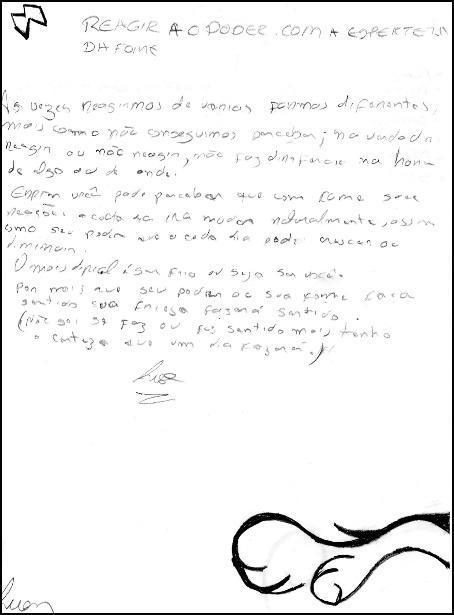 REAGIR AO PODER.COM A ESPERTEZA
DA FOME
As vezes reagirmos de varias formas diferentes,
mais como não conseguimos perceber; na verdade
reagir ou não reagir, não faz diferencia na hora
de algo de onde.
você pode perceber que com fome suas
reações a cada dia irá mudar naturalmente, assim
como seu poder que a cada dia pode crescer ou
diminuir.
O mais dificil é ser frio ou seja ser você.
Por mais que seu poder ou sua fome faça
sentido sua frieza fazerá sentido.
(Não sei se faz ou fez sentido mais tenho
a certeza que um dia fazerá.)
Luan